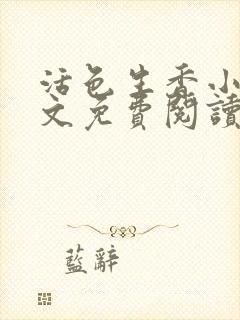 活色生香小
文免費閱讀
藍辭